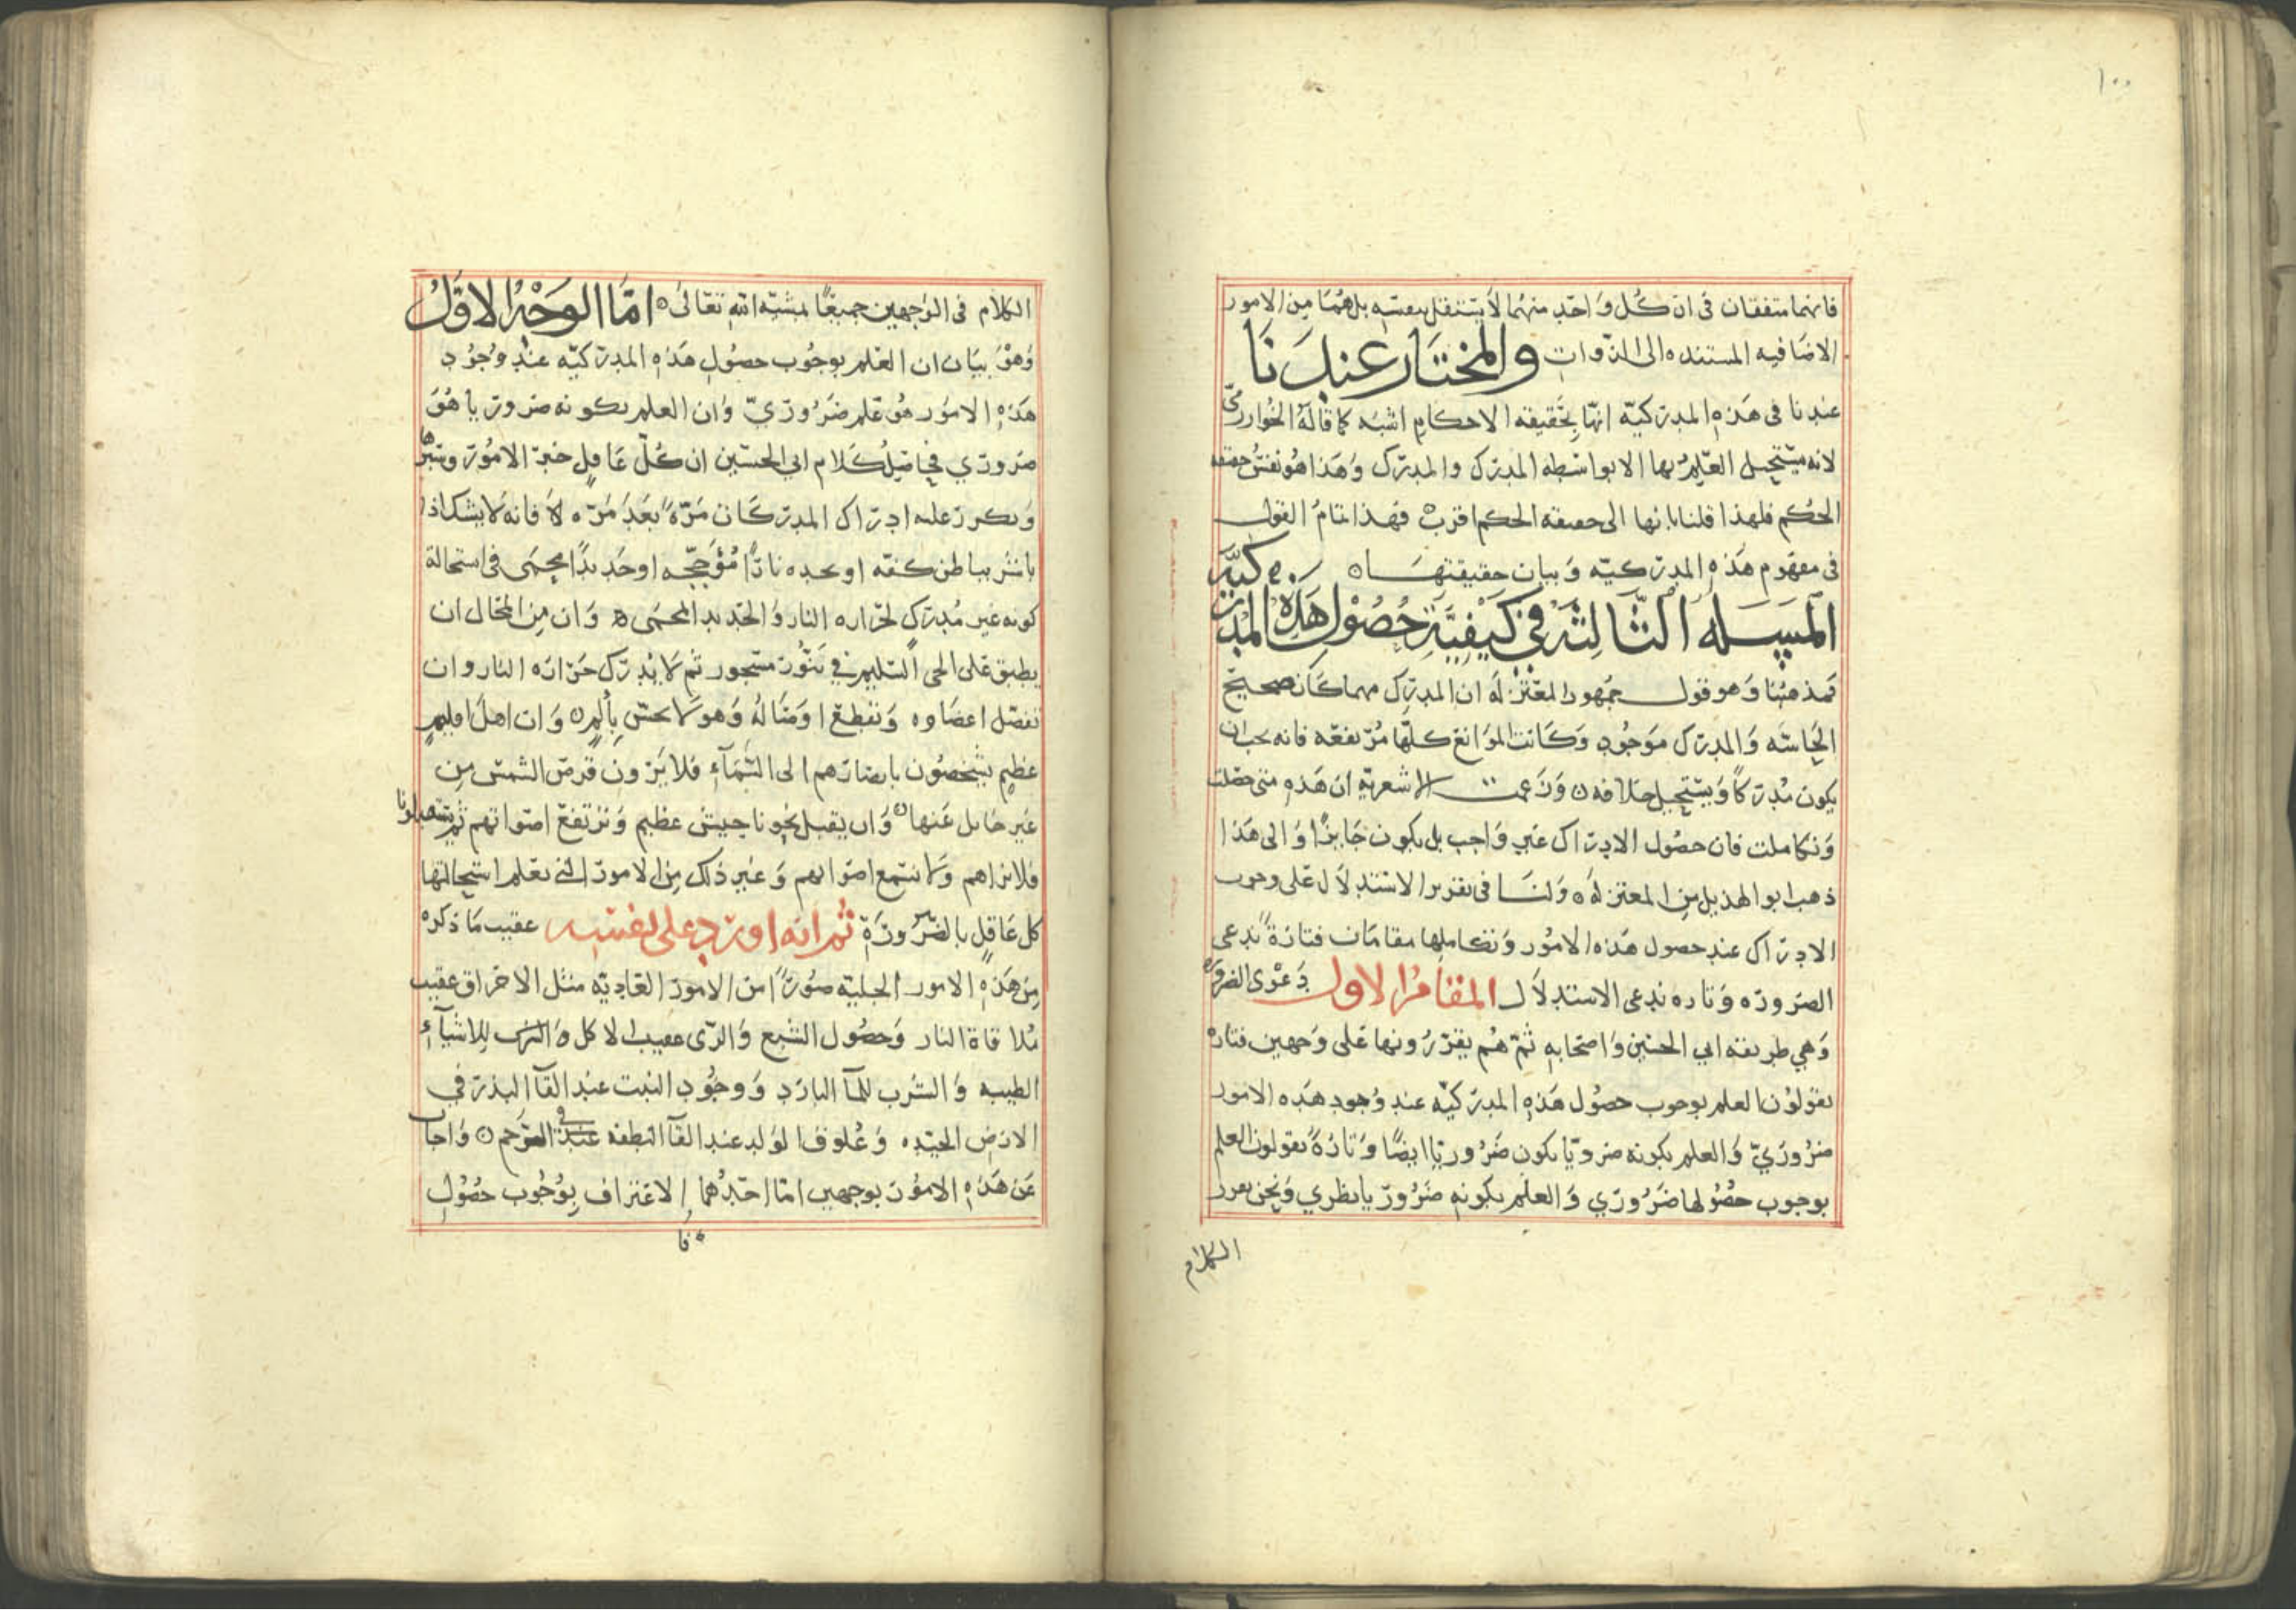 ١٠٠
فانهما متفقان فى ان كُل وَاحَدٍ منهُما لاَ يستقل بنفسه بل هُمَا مِن الامور
الاضَافيه المستنده الى الذوات والمختَار عندنَا
عندنا فى هَذهِ المدركيّه انهّا بحَقيقه الاحكامِ اشبَه كما قالهُ الخوارزمى
لانه يستحيل العَلمُ بها الا بواسَطه المدرك والمدرَك وَهَذا هُو نفسُ حقيقه
الحُكم فلهذا قلنا بانها الى حقيقه الحكم اقربُ فهَذا تمامُ القول
فى مفهُوم هَذهِ المدركيّه وَبيان حقيقتهَا ه
المَسَله الثّالثه فى كَيفيَّة حُصُول هَذه المدركيّه
فمذهبُنا وَهو قول جمهور المعتزله ان المدرك مهما كَان صحيح
الحَاسّه وَالمدرَك موَجُود وَكَانت الموَانع كلهّا مُرتفعَه فانه يجب ان
يكون مُدركاً وَيستَحيل خلافه ه وَزَعمت الاشعريّه ان هَذهِ متى حصَلت
وَتكاملت فان حصُول الادراك غير وَاجب بل يكون جَايزًا وَالى هَذا
ذهب ابو الهذيل مِن المعتزله ه وَلنَا فى تقرير الاستدلاَل عَلى وجوب
الادراك عند حصول هَذه الامُور وَتكاملها مقامَان فتارَةً ندعى
الضروره وَتاره ندعى الاستدلاَل المقامُ الاول دَعْوَى الضروره
وَهي طريقه ابي الحسَين وَاصحَابهِ ثمّ هُم يقرّرُونها عَلى وَجهين فتاره
يقولوُن العلم بوجوب حصُول هَذهِ المدركيّه عند وُجود هَذه الامور
ضرُورَيّ وَالعلم بكونه ضروريّا يكون ضَرُوريّا ايضًا وَتارَةً يقولون العلم
بوجوب حصُولها ضَرُورَي وَالعلم بكونه ضَرُورَيا نظري وَنحن نقرر
الكلام
الكلام فى الوَجهين جميعًا بمشيّه الله تعَالىٰ ه امّا الوَجْهُ الاوّلُ
وَهوَ بيَان ان العَلم بوجُوب حصُول هَذهِ المدركيّه عند وُجُود
هَذهِ الامُور هُو عَلم ضَرُورَيّ وَان العلم بكونه ضروريا هُوَ
ضرورَي فحاصِل كَلام ابي الحسَين ان كُلّ عَاقل خبرَ الامُورَ وسَبرهَا
وَتكررَ عليه ادراك المدركَات مَرّةً بعَد مَرّه لاَ فانه لاَ يشك اذا
باشر بباطن كفّه او بجلده نارًا مُؤَجّجه او حَديدًا محمَى فى استحالة
كونه غير مُدرك لحرَاره النار وَالحَديد المحمَى ه وَان مِن المحال ان
يطبق عَلى الحى السَليم فى تنّور مسجور ثم لاَ يدرك حَرارَه النار وان
تفصل اعضاوه وَتقطع اوصَالهُ وَهو لاَ يحسّ بألم ه وَان اهل اقليمٍ
عظيمٍ يشخصُون بابصارَهم الى السّمَآءِ فلا يَرَون قرصَ الشمس مِن
غير حَايل عَنها ه وَان يقبل نحونا جيش عظيم وَترتفع اصوَاتهم ثم يشهدونا
فلا نراهم وَلا نسمع اصوَاتهم وَغير ذلك مِن الامور التى نعَلم استحالتها
كل عَاقل بالضّرورَة ثم انه اورد على نفسه عقيب مَا ذكره
مِن هَذهِ الامور الجليّه صُورًا من الامور العَاديّه مثل الاحراق عقيب
مُلاقاة النار وَحصُول الشبع وَالرّى عقيب الاكل وَالشرب للاشيآءِ
الطيبه وَالشرب للمآ البارد وَوجُود النبت عند القآ البذر فى
الارض الجيّده وَعُلوق الوَلد عند القآ النطفه فى الرَحم ه وَاجاب
عَن هَذهِ الامُور بوجهين امّا احَدهُما الاعتراف بوُجوب حصُول